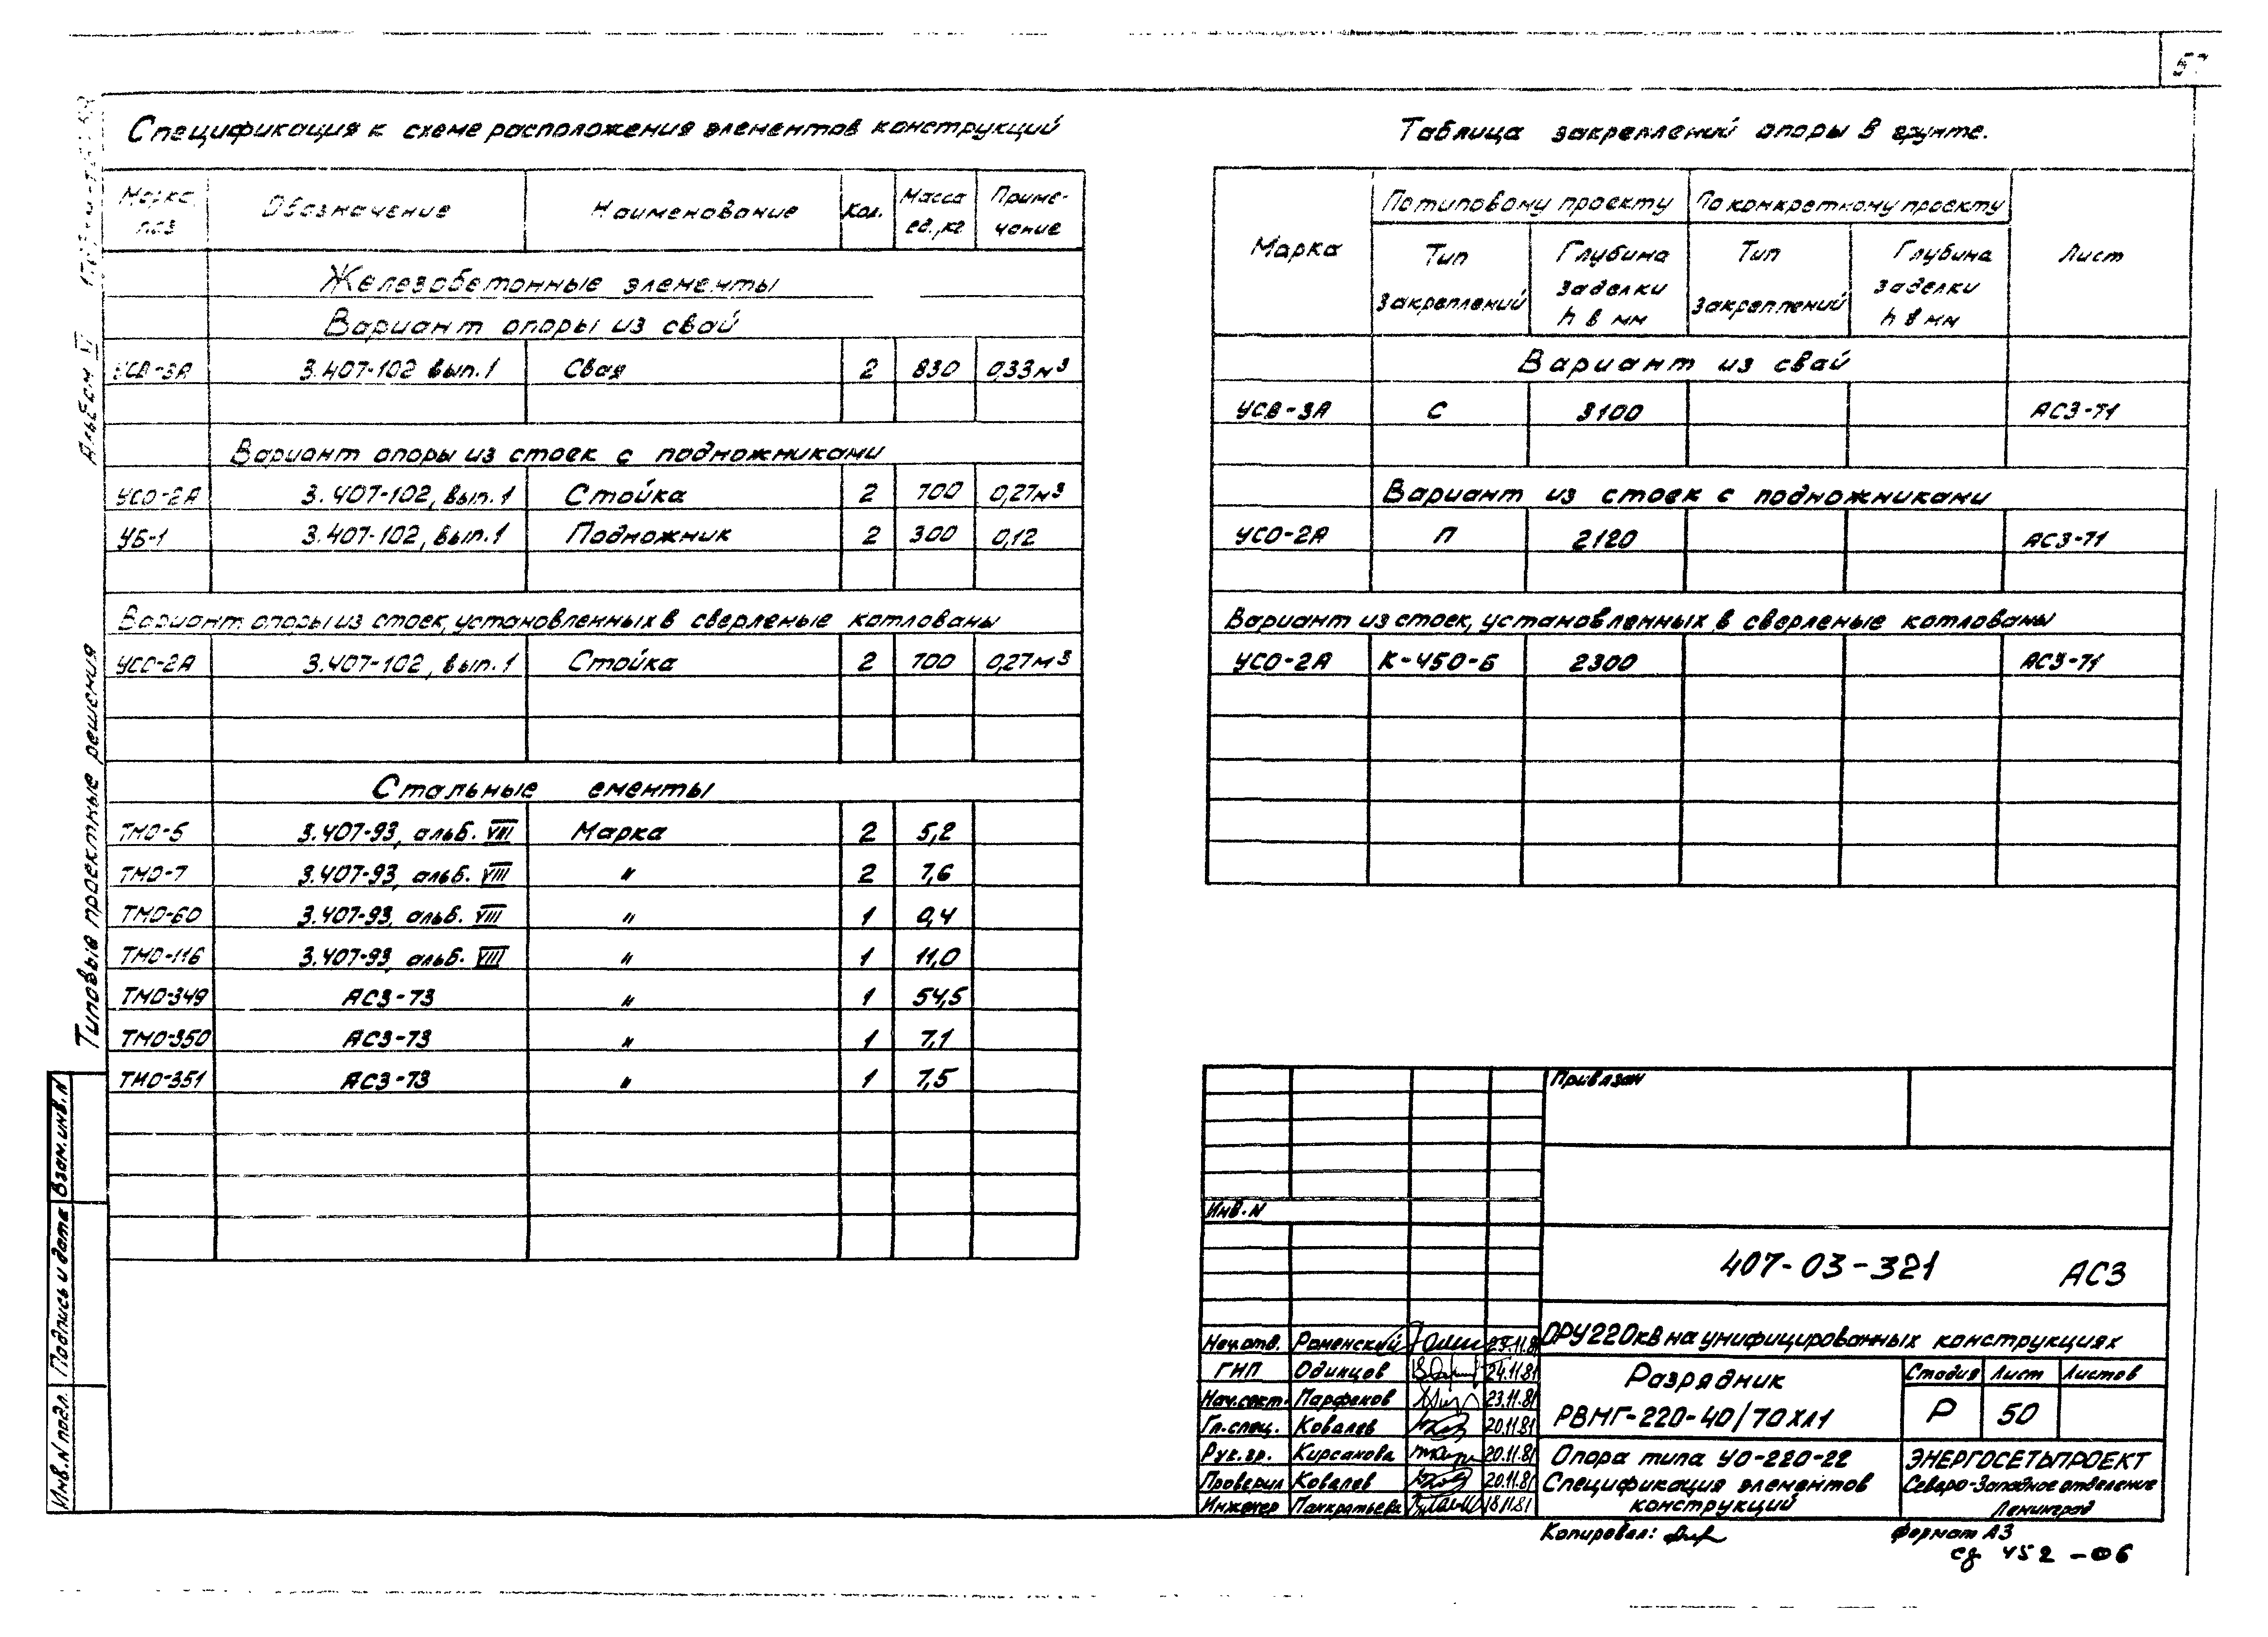 Спецификация к схеме расположения элементов конструкций
Марка, поз | Обозначение | Наименование | Кол. | Масса ед., кг | Приме-чание
Железобетонные элементы
Вариант опоры из свай
УСВ-3А 3.407-102 вып.1 Свая 2 830 0,33м³
Вариант опоры из стоек с подножниками
УСО-2А 3.407-102, вып.1 Стойка 2 700 0,27м³
УБ-1 3.407-102, вып.1 Подножник 2 300 0,12
Вариант опоры из стоек, установленных в сверленые котлованы
УСО-2А 3.407-102, вып.1 Стойка 2 700 0,27м³
Стальные ементы
ТМО-5 3.407-93, альб. VIII Марка 2 5,2
ТМО-7 3.407-93, альб. VIII " 2 7,6
ТМО-60 3.407-93, альб. VIII " 1 0,4
ТМО-116 3.407-93, альб. VIII " 1 11,0
ТМО-349 АС3-73 " 1 54,5
ТМО-350 АС3-73 " 1 7,1
ТМО-351 АС3-73 " 1 7,5
Таблица закреплений опоры в грунте.
Марка | По типовому проекту | По конкретному проекту | Лист
Тип закреплений | Глубина заделки h в мм | Тип закреплений | Глубина заделки h в мм
Вариант из свай
УСВ-3А С 3100 АС3-71
Вариант из стоек с подножниками
УСО-2А П 2120 АС3-71
Вариант из стоек, установленных в сверленые котлованы
УСО-2А К-450-Б 2300 АС3-71
Привязан
Инв.N
407-03-321 АС3
ОРУ 220кВ на унифицированных конструкциях
Разрядник
РВМГ-220-40/70ХЛ1
Стадия Лист Листов
Р 50
Опора типа УО-220-22
Спецификация элементов
конструкций
ЭНЕРГОСЕТЬПРОЕКТ
Северо-Западное отделение
Ленинград
Нач.отв. Роменский 23.11.81
ГИП Одинцов 24.11.81
Нач.сект. Парфенов 23.11.81
Гл.спец. Ковалев 20.11.81
Рук.гр. Кирсанова 20.11.81
Проверил Ковалев 20.11.81
Инженер Панкратьева 18.11.81
Копировал:
Формат А3
сф 452-06
Альбом VI
Типовые проектные решения
Взам.инв.N
Подпись и дата
Инв.N подл.